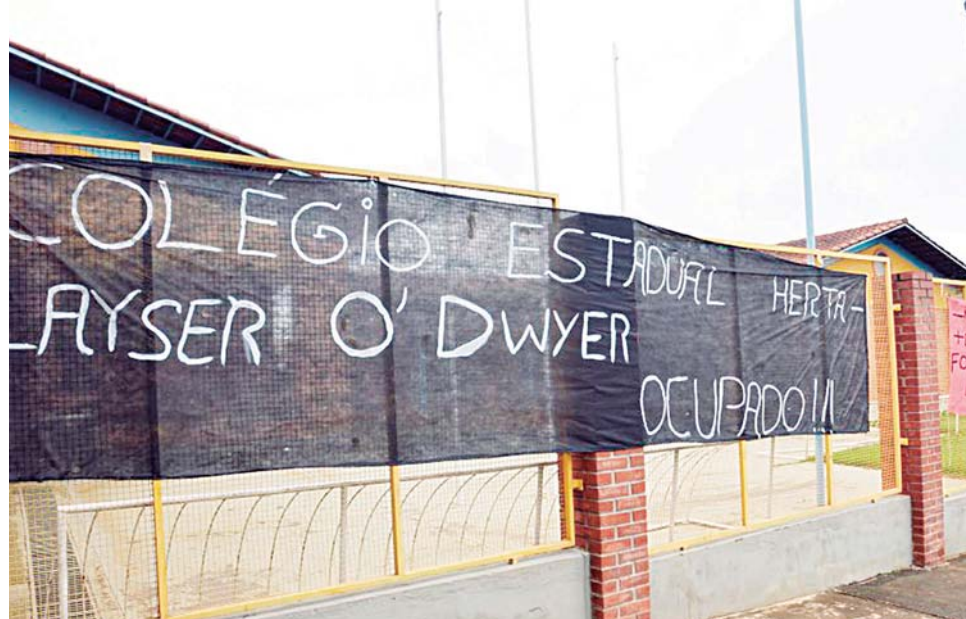 COLÉGIO ESTADUAL HERTA-
LAYSER O'DWYER
OCUPADO!!!